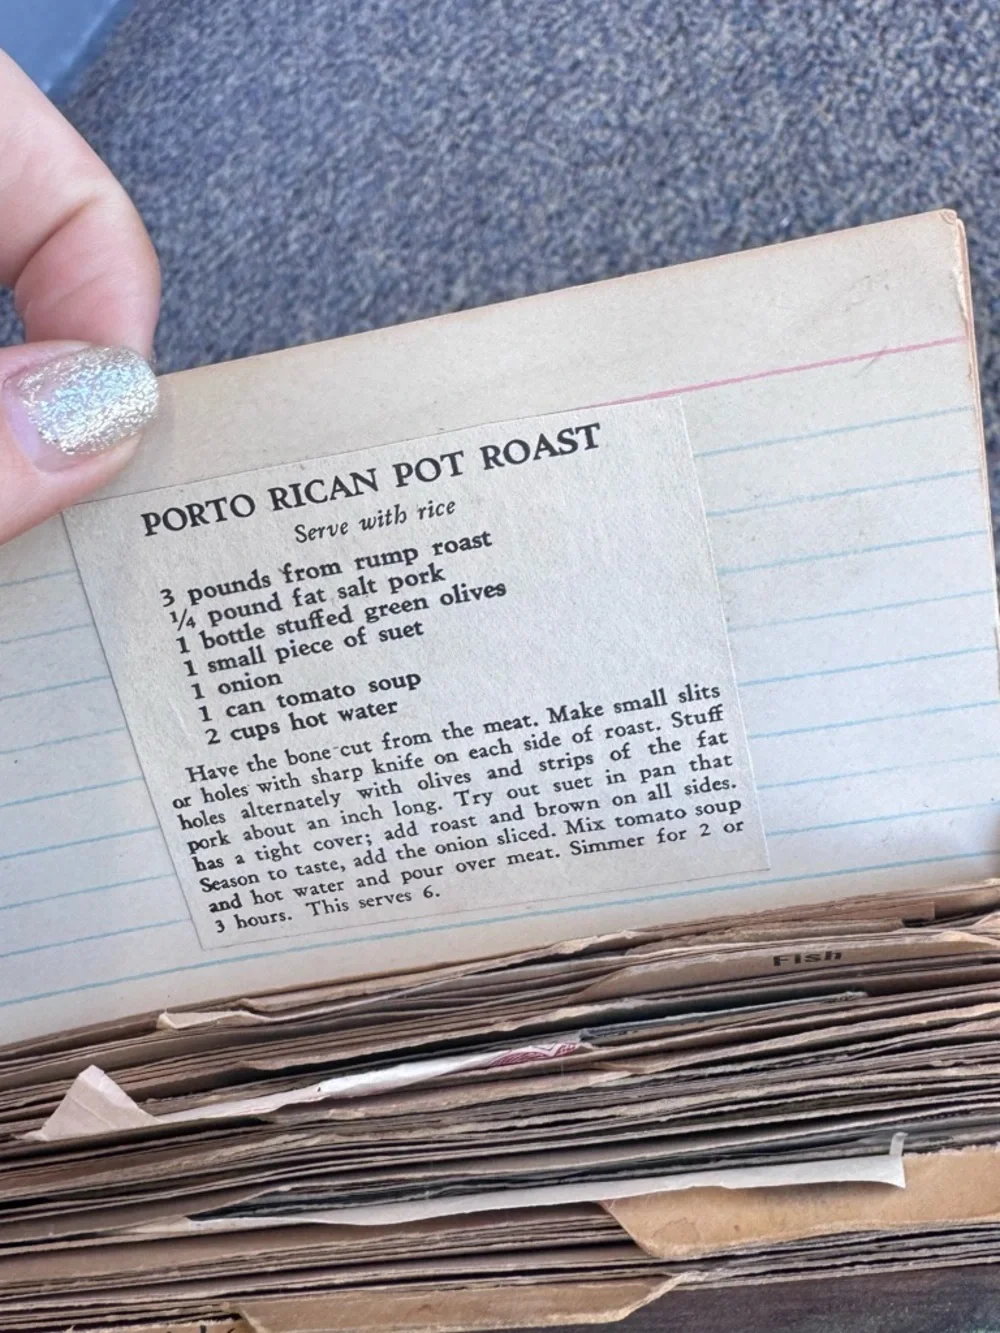 PORTO RICAN POT ROAST
Serve with rice
3 pounds from rump roast
¼ pound fat salt pork
1 bottle stuffed green olives
1 small piece of suet
1 onion
1 can tomato soup
2 cups hot water
Have the bone cut from the meat. Make small slits
or holes with sharp knife on each side of roast. Stuff
holes alternately with olives and strips of the fat
pork about an inch long. Try out suet in pan that
has a tight cover; add roast and brown on all sides.
Season to taste, add the onion sliced. Mix tomato soup
and hot water and pour over meat. Simmer for 2 or
3 hours. This serves 6.
Fish